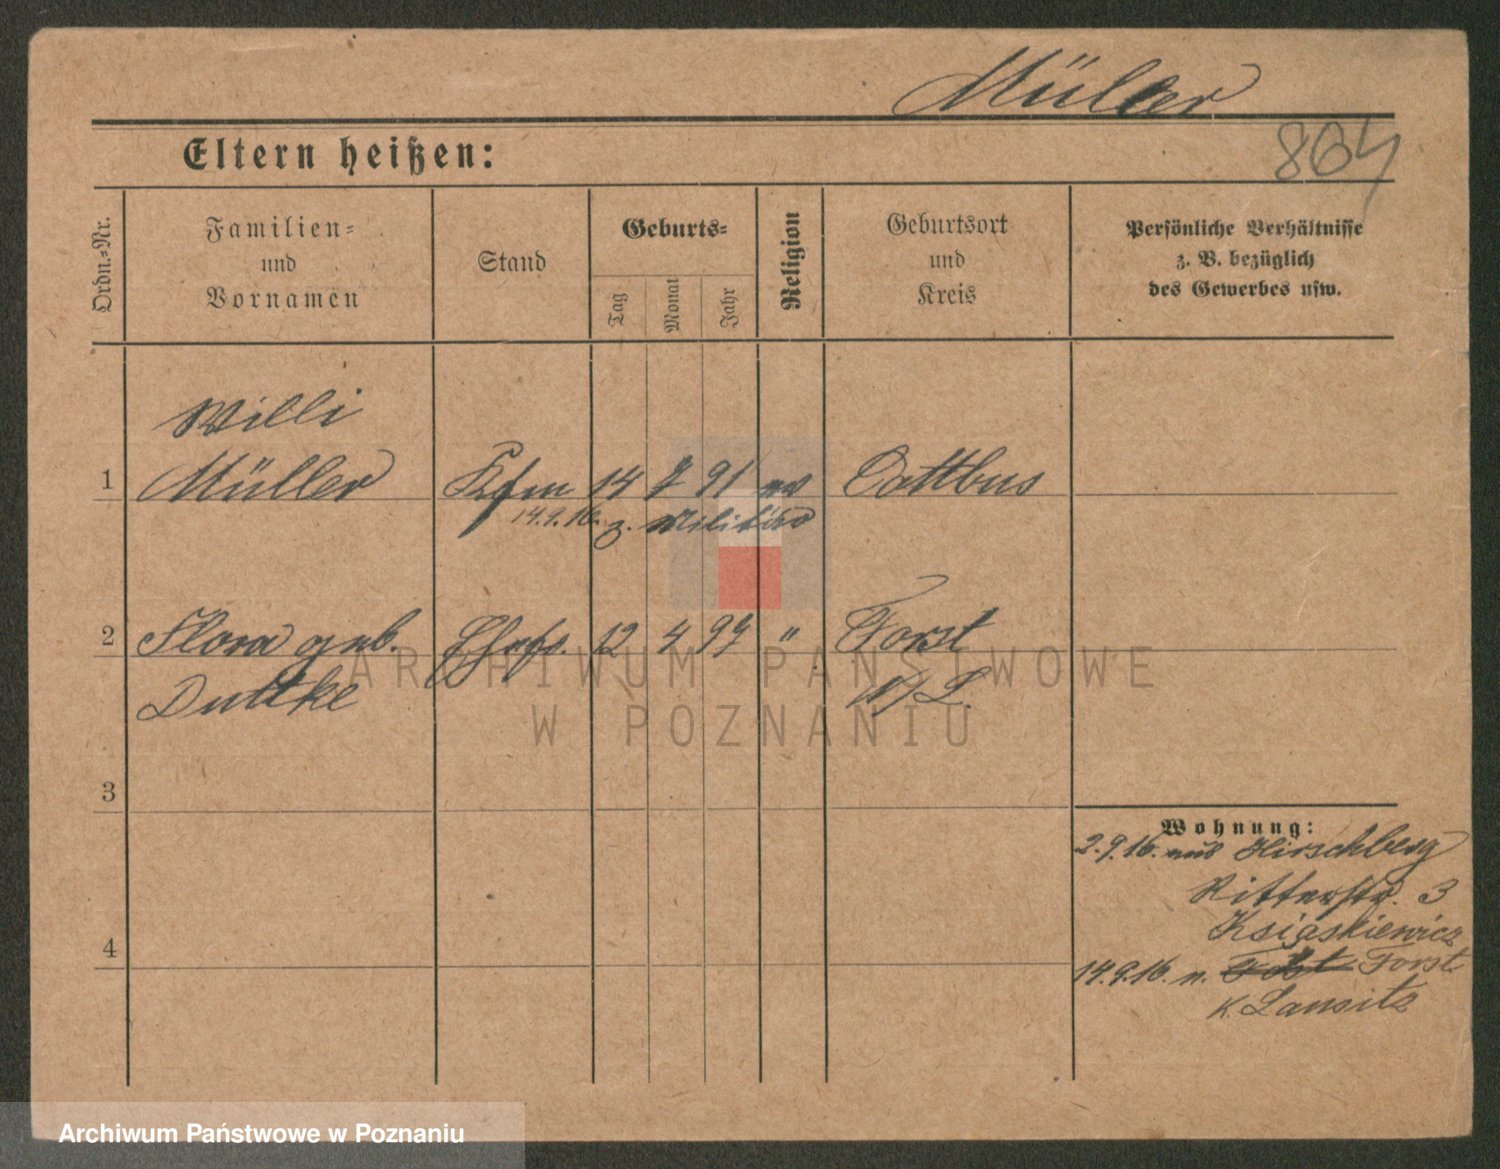 Müller
864
Eltern heißen:
Ordn.-Nr.
Familien-
und
Vornamen
Stand
Geburts-
Tag
Monat
Jahr
Religion
Geburtsort
und
Kreis
Persönliche Verhältnisse
z. B. bezüglich
des Gewerbes usw.
Willi
1 Müller Kfm 14 91 ev Cottbus
14.9.16. z. Militär
2 Flora geb. Ehefr. 12 4 97 " Forst
Duttke N/L.
3
Wohnung:
2.9.16. aus Hirschberg
Ritterstr. 3
Ksiąskiewicz
4
14.9.16. n. Forst
K. Lausitz
ARCHIWUM PAŃSTWOWE
W POZNANIU
Archiwum Państwowe w Poznaniu